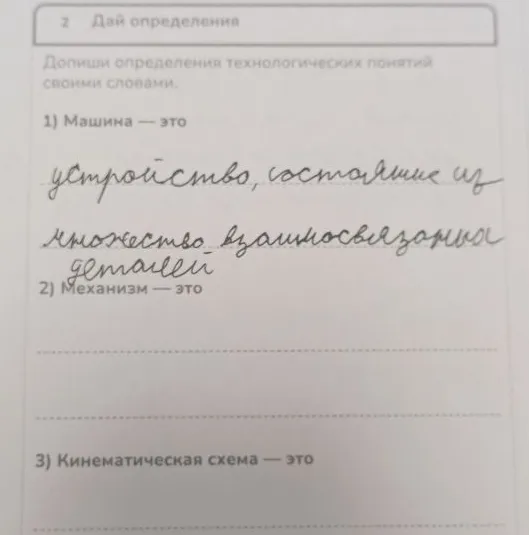 2 Дай определения
Допиши определения технологических понятий
своими словами.
1) Машина — это
устройство, состоящие из
множество взаимосвязаных
деталей
2) Механизм — это
3) Кинематическая схема — это